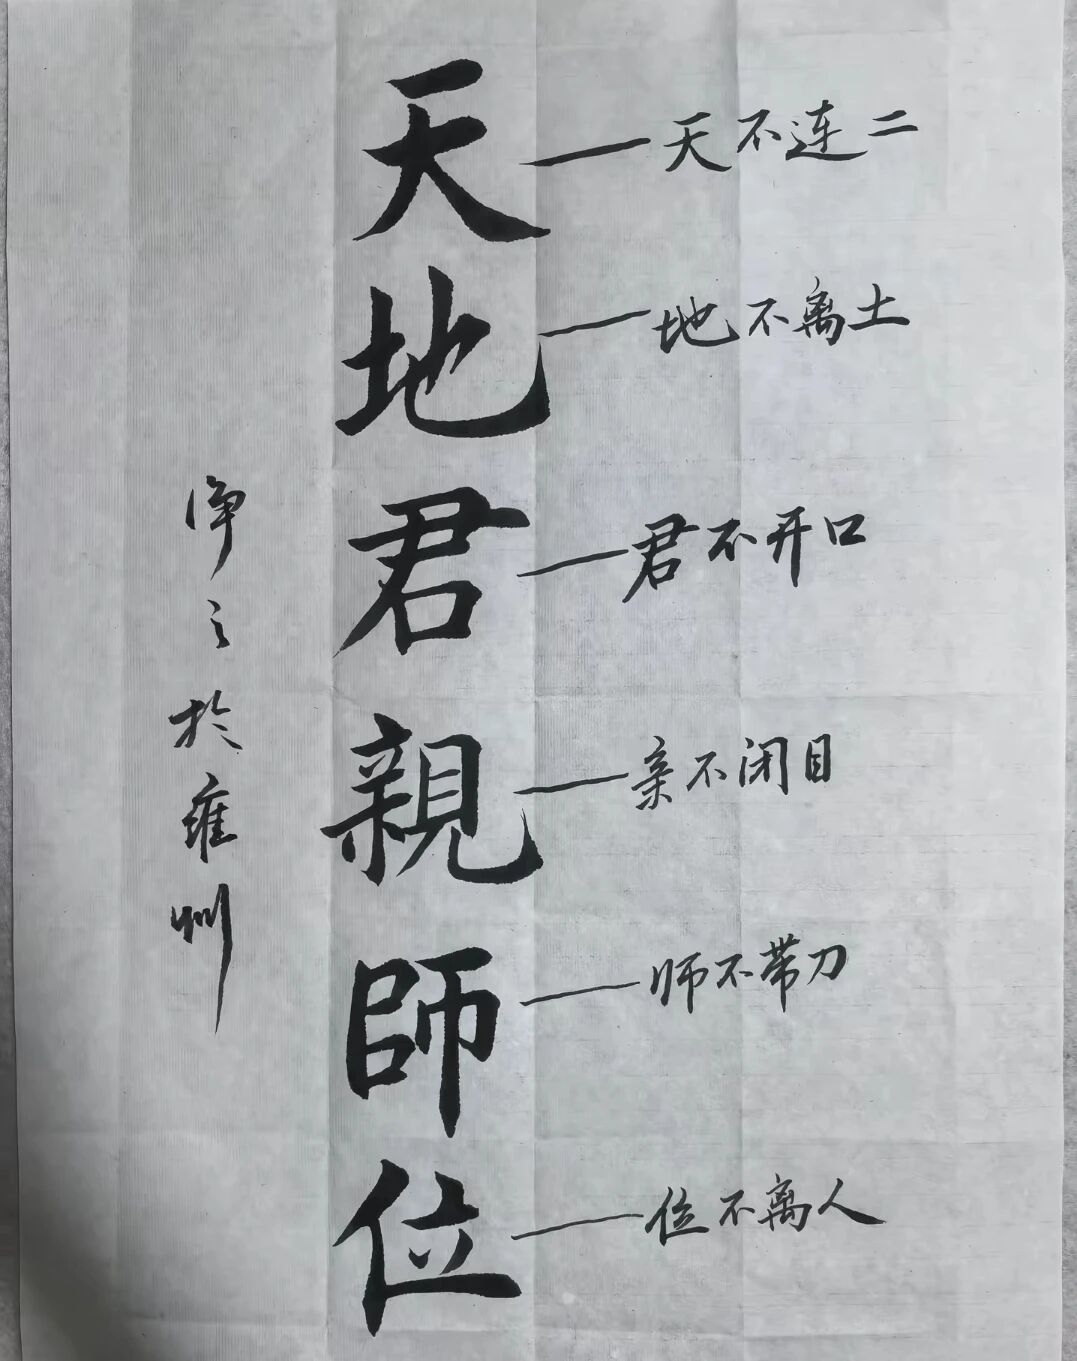 天地君親師位
天不连二
地不离土
君不开口
亲不闭目
师不带刀
位不离人
净之於雍州